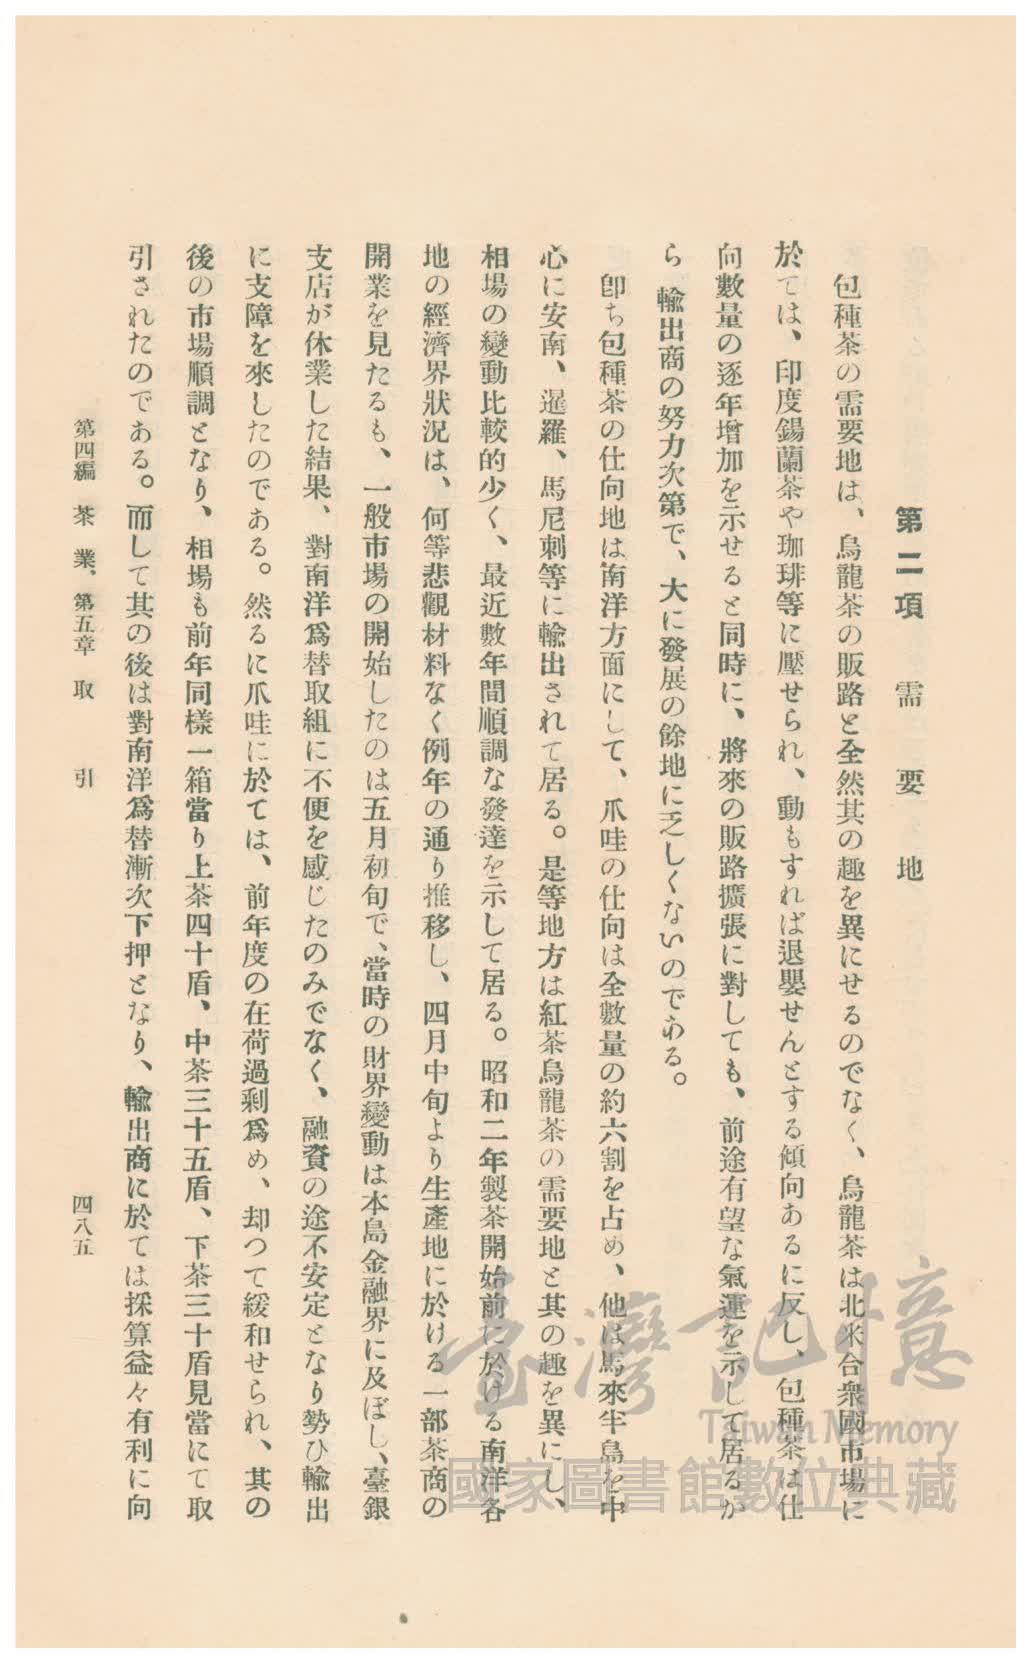 第二項　需要地
包種茶の需要地は、烏龍茶の販路と全然其の趣を異にせるのでなく、烏龍茶は北米合衆國市場に
於ては、印度錫蘭茶や珈琲等に壓せられ、動もすれば退嬰せんとする傾向あるに反し、包種茶は仕
向數量の逐年增加を示せると同時に、將來の販路擴張に對しても、前途有望な氣運を示して居るか
ら輸出商の努力次第で、大に發展の餘地に乏しくないのである。
卽ち包種茶の仕向地は南洋方面にして、爪哇の仕向は全數量の約六割を占め、他は馬來半島を中
心に安南、暹羅、馬尼刺等に輸出されて居る。是等地方は紅茶烏龍茶の需要地と其の趣を異にし、
相場の變動比較的少く、最近數年間順調な發達を示して居る。昭和二年製茶開始前に於ける南洋各
地の經濟界狀況は、何等悲觀材料なく例年の通り推移し、四月中旬より生產地に於ける一部茶商の
開業を見たるも、一般市場の開始したのは五月初旬で、當時の財界變動は本島金融界に及ぼし、臺銀
支店が休業した結果、對南洋爲替取組に不便を感じたのみでなく、融資の途不安定となり勢ひ輸出
に支障を來したのである。然るに爪哇に於ては、前年度の在荷過剩爲め、却つて緩和せられ、其の
後の市場順調となり、相場も前年同樣一箱當り上茶四十盾、中茶三十五盾、下茶三十盾見當にて取
引されたのである。而して其の後は對南洋爲替漸次下押となり、輸出商に於ては採算益々有利に向
第四編　茶業、第五章　取引
四八五
臺灣記憶
Taiwan Memory
國家圖書館數位典藏